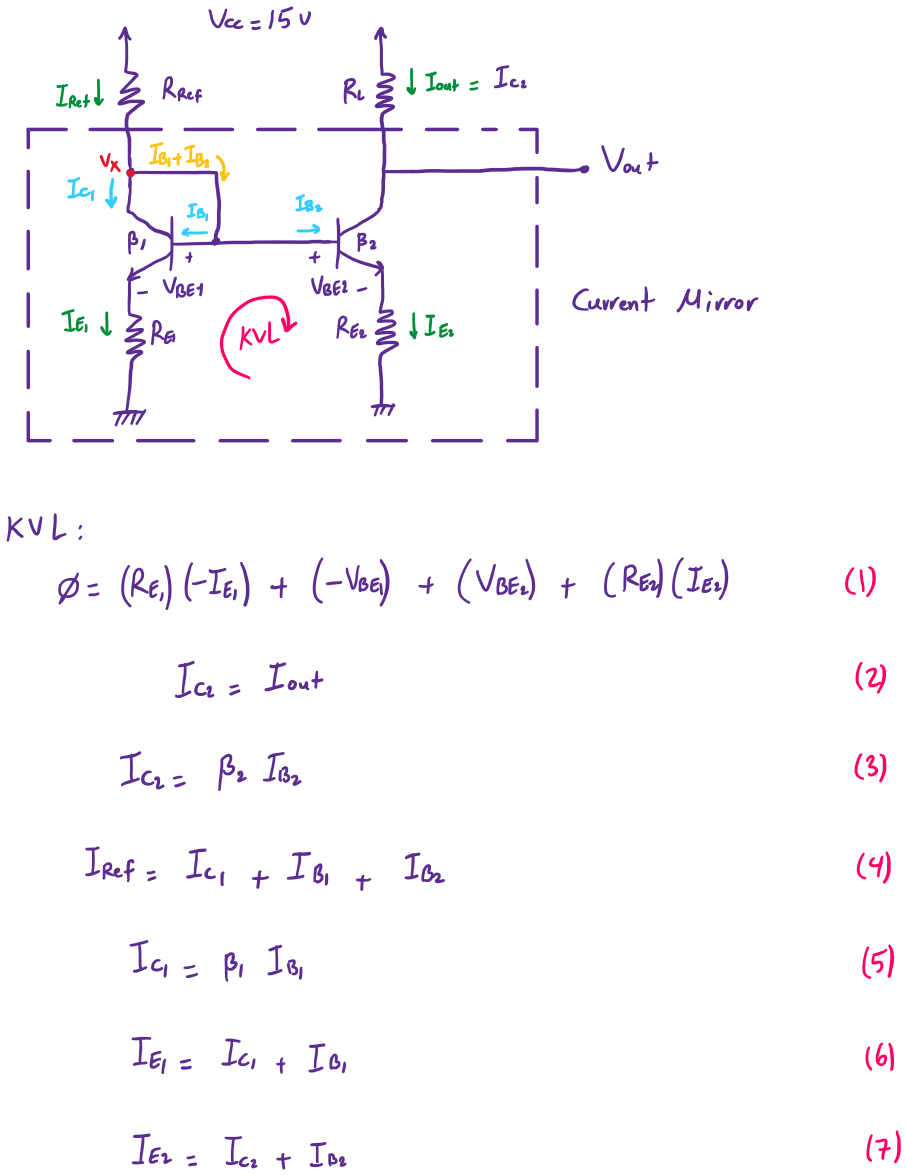 Vcc = 15v
IRet RRef RL Iout = Ic2
Vx IB1 + IB2 Vout
Ic1 IB1 IB2
β1 + + β2
- VBE1 VBE2 -
Current Mirror
IE1 RE1 KVL RE2 IE2
KVL:
Ø = (RE1)(-IE1) + (-VBE1) + (VBE2) + (RE2)(IE2) (1)
Ic2 = Iout (2)
Ic2 = β2 IB2 (3)
IRef = Ic1 + IB1 + IB2 (4)
Ic1 = β1 IB1 (5)
IE1 = Ic1 + IB1 (6)
IE2 = Ic2 + IB2 (7)